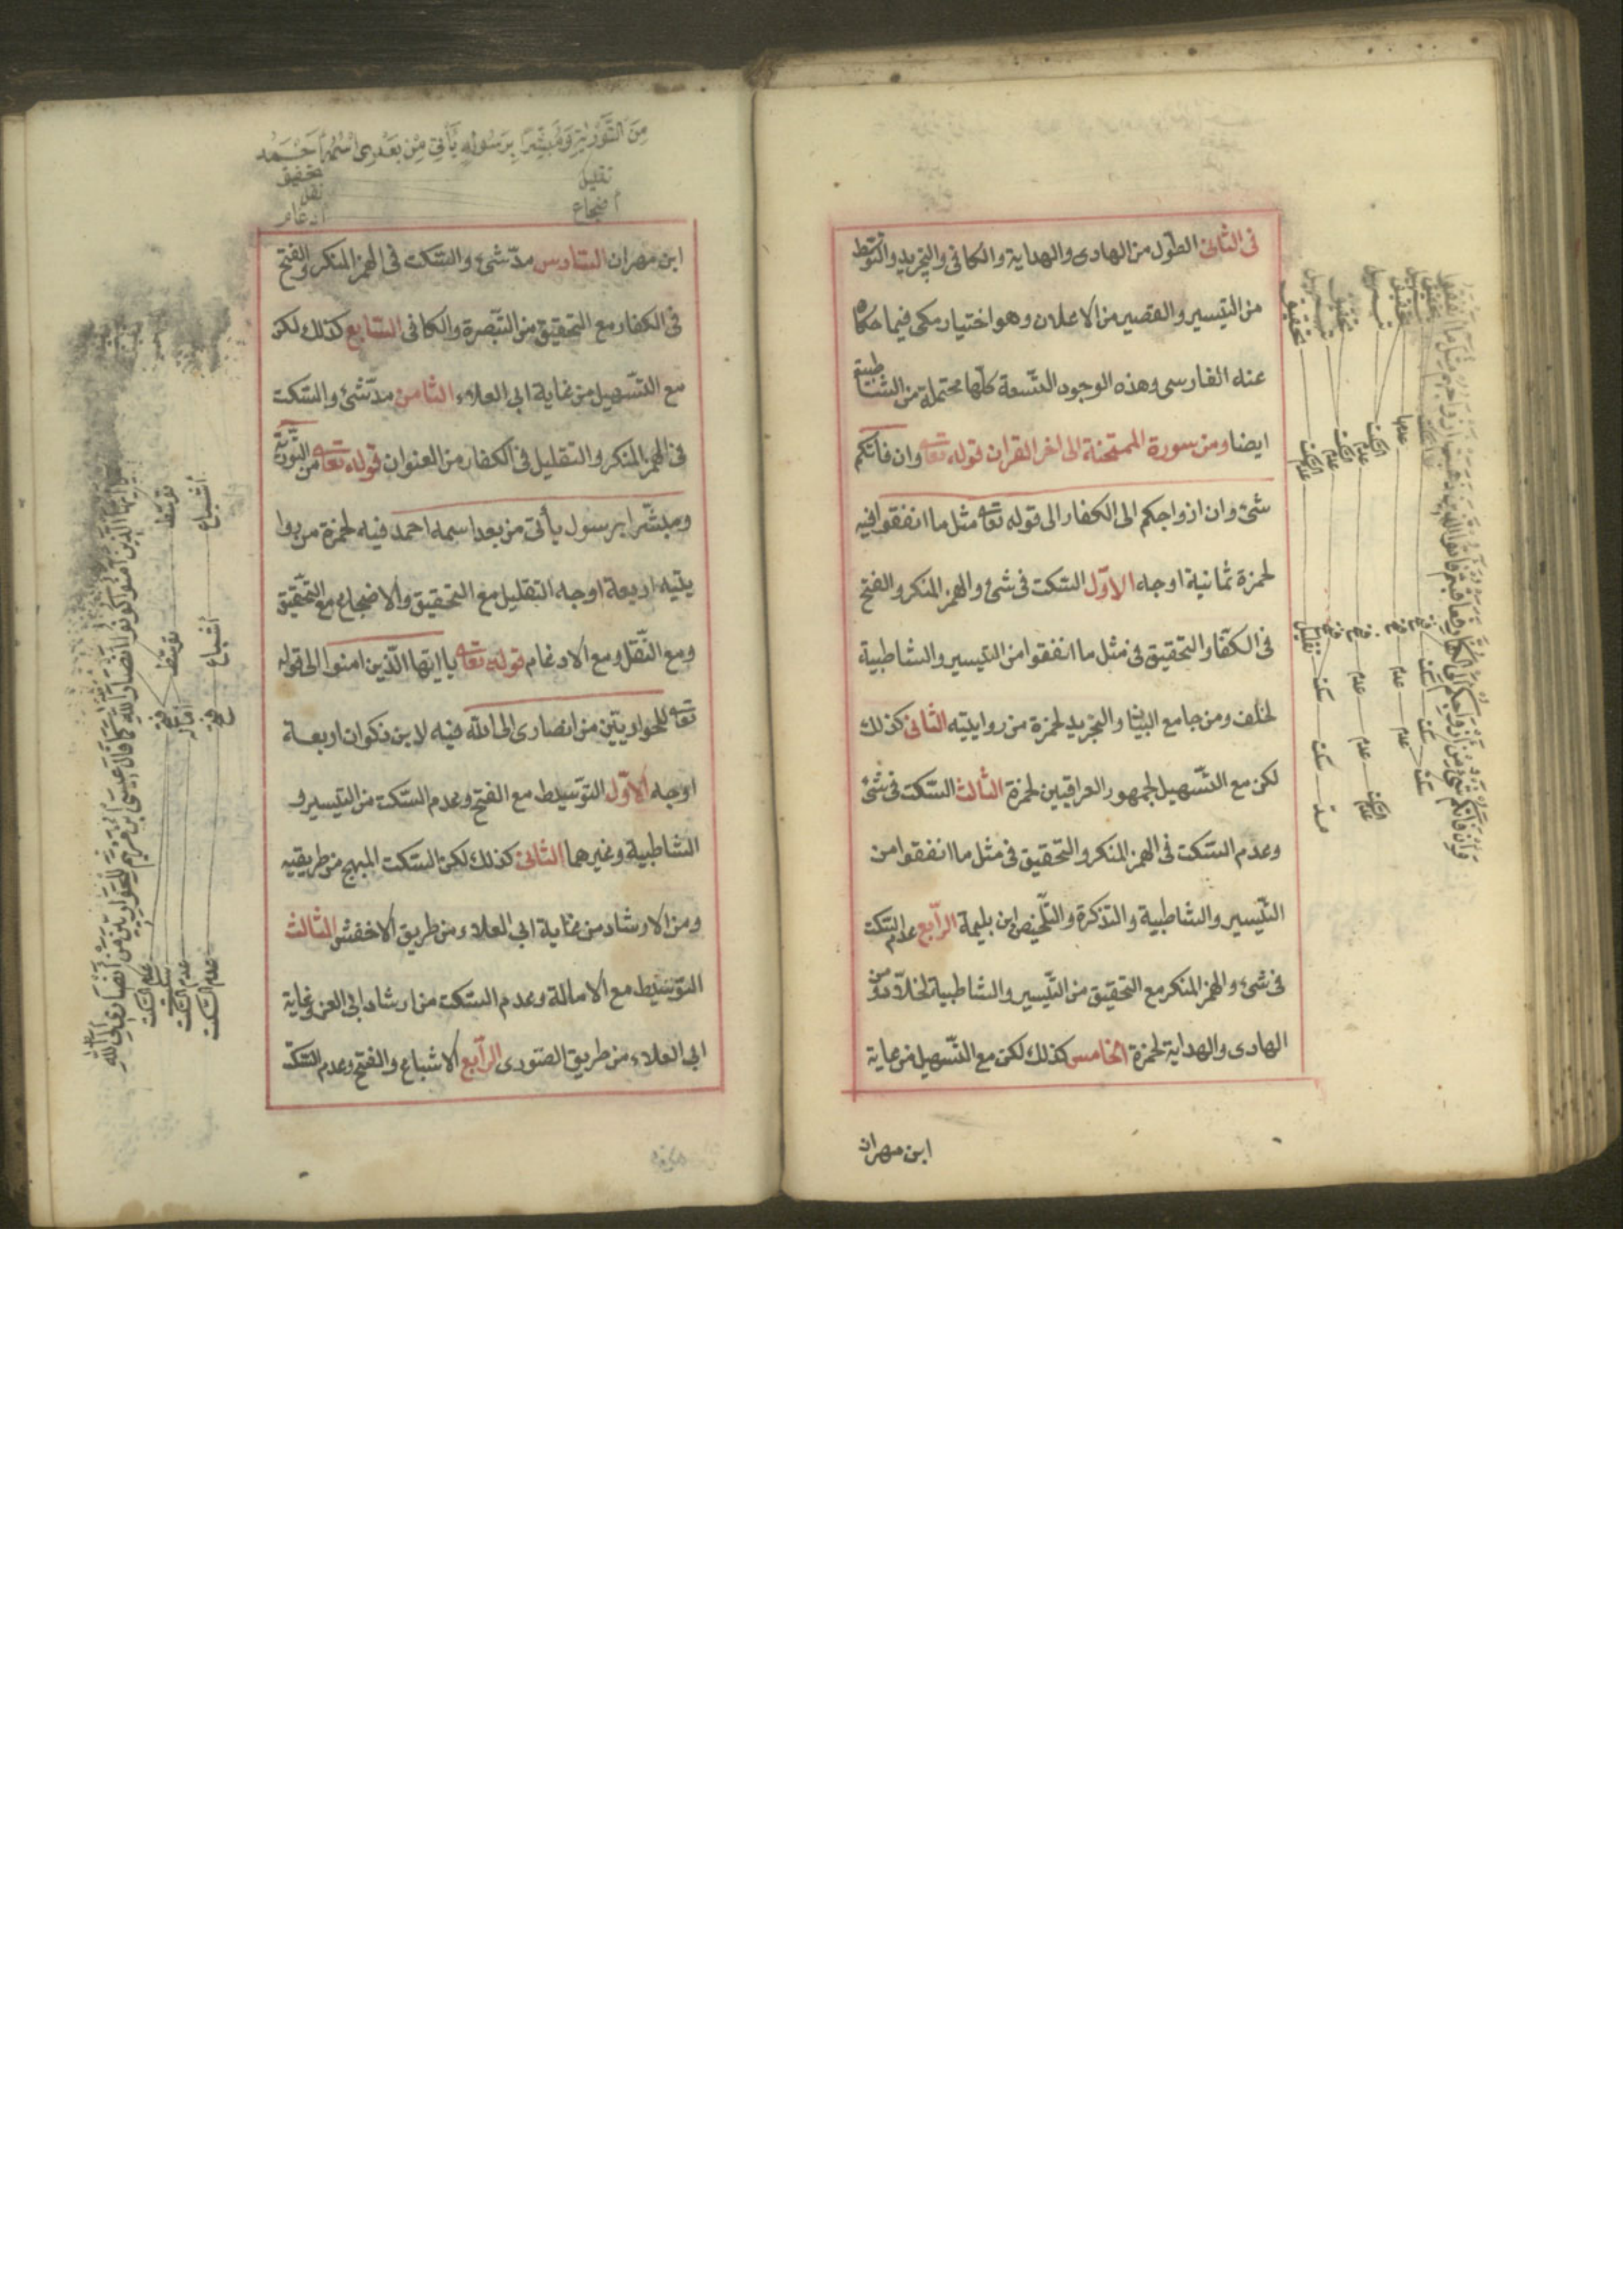 فى الثانى الطول من الهادى والهداية والكافى والتجريد والتوسط
من التيسير والقصير من الاعلان وهو اختيار مكى فيما حكاه
عنه الفارسى وهذه الوجوه التسعة كلها محتملة من الشاطبية
ايضا ومن سورة الممتحنة الى اخر القران قوله تعا وان فاتكم
شئ وان ازواجكم الى الكفار الى قوله تعا مثل ما انفقوا فيه
لحمزة ثمانية اوجه الاوّل السّكت فى شئ والهمز المنكر والفتح
فى الكفّار والتحقيق فى مثل ما انفقوا من التيسير والشاطبية
لخلف ومن جامع البيان والتجريد لحمزة من روايتيه الثانى كذلك
لكن مع التّسهيل لجمهور العراقيين لحمزة الثالث السّكت فى شئ
وعدم السّكت فى الهمز المنكر والتحقيق فى مثل ما انفقوا من
التّيسير والشاطبية والتذكرة والتّلخيص ابن بليمة الرّابع عدم السّكت
فى شئ والهمز المنكر مع التحقيق من التّيسير والشاطبية لخلّاد ومن
الهادى والهداية لحمزة الخامس كذلك لكن مع التّسهيل من غاية
ابن مهران
وَاِنْ فَاتَكُمْ شَىْءٌ مِنْ اَزْوَاجِكُمْ اِلَى الكُفَّارِ فَعَاقَبْتُمْ فَاٰتُوا الَّذِينَ ذَهَبَتْ اَزْوَاجُهُمْ مِثْلَ مَا اَنْفَقُوا
مِنَ التَّوْرٰيةِ وَمُبَشِّرًا بِرَسُولٍ يَأْتِى مِنْ بَعْدِى اسْمُهُ اَحْمَد
تقليل تحقيق
نقل
اضجاع ادغام
ابن مهران السّادس مدّ شئ والسّكت فى الهمز المنكر والفتح
فى الكفار مع التحقيق من التّبصرة والكافى السّابع كذلك لكن
مع التّسهيل من غاية ابى العلاء الثامن مدّ شئ والسّكت
فى الهمز المنكر والتقليل فى الكفار من العنوان قوله تعا من التّورٰية
ومبشّرا برسول يأتى من بعد اسمه احمد فيه لحمزة من روا
يتيه اربعة اوجه التقليل مع التحقيق والاضجاع مع التّحقيق
ومع النّقل ومع الادغام قوله تعا يا ايّها الّذين امنوا الى قوله
تعا للحواريّين من انصارى الى الله فيه لابن ذكوان اربعة
اوجه الاوّل التوسيط مع الفتح وعدم السّكت من التيسير و
الشاطبية وغيرهما الثانى كذلك لكن السّكت المبهج من طريقيه
ومن الارشاد من غاية ابى العلاء ومن طريق الاخفش الثالث
التّوسّيط مع الامالة وعدم السّكت من ارشاد ابى العز غاية
ابى العلاء من طريق الصّورى الرّابع الاشباع والفتح وعدم السّكت
يا ايّها الّذين اٰمنوا كونوا انصار الله كما قال عيسى ابن مريم للحواريّين من انصارى الى الله
توسّط توسّط فتح عدم السّكت
سكت
امالة عدم السّكت
اشباع اشباع فتح عدم السّكت